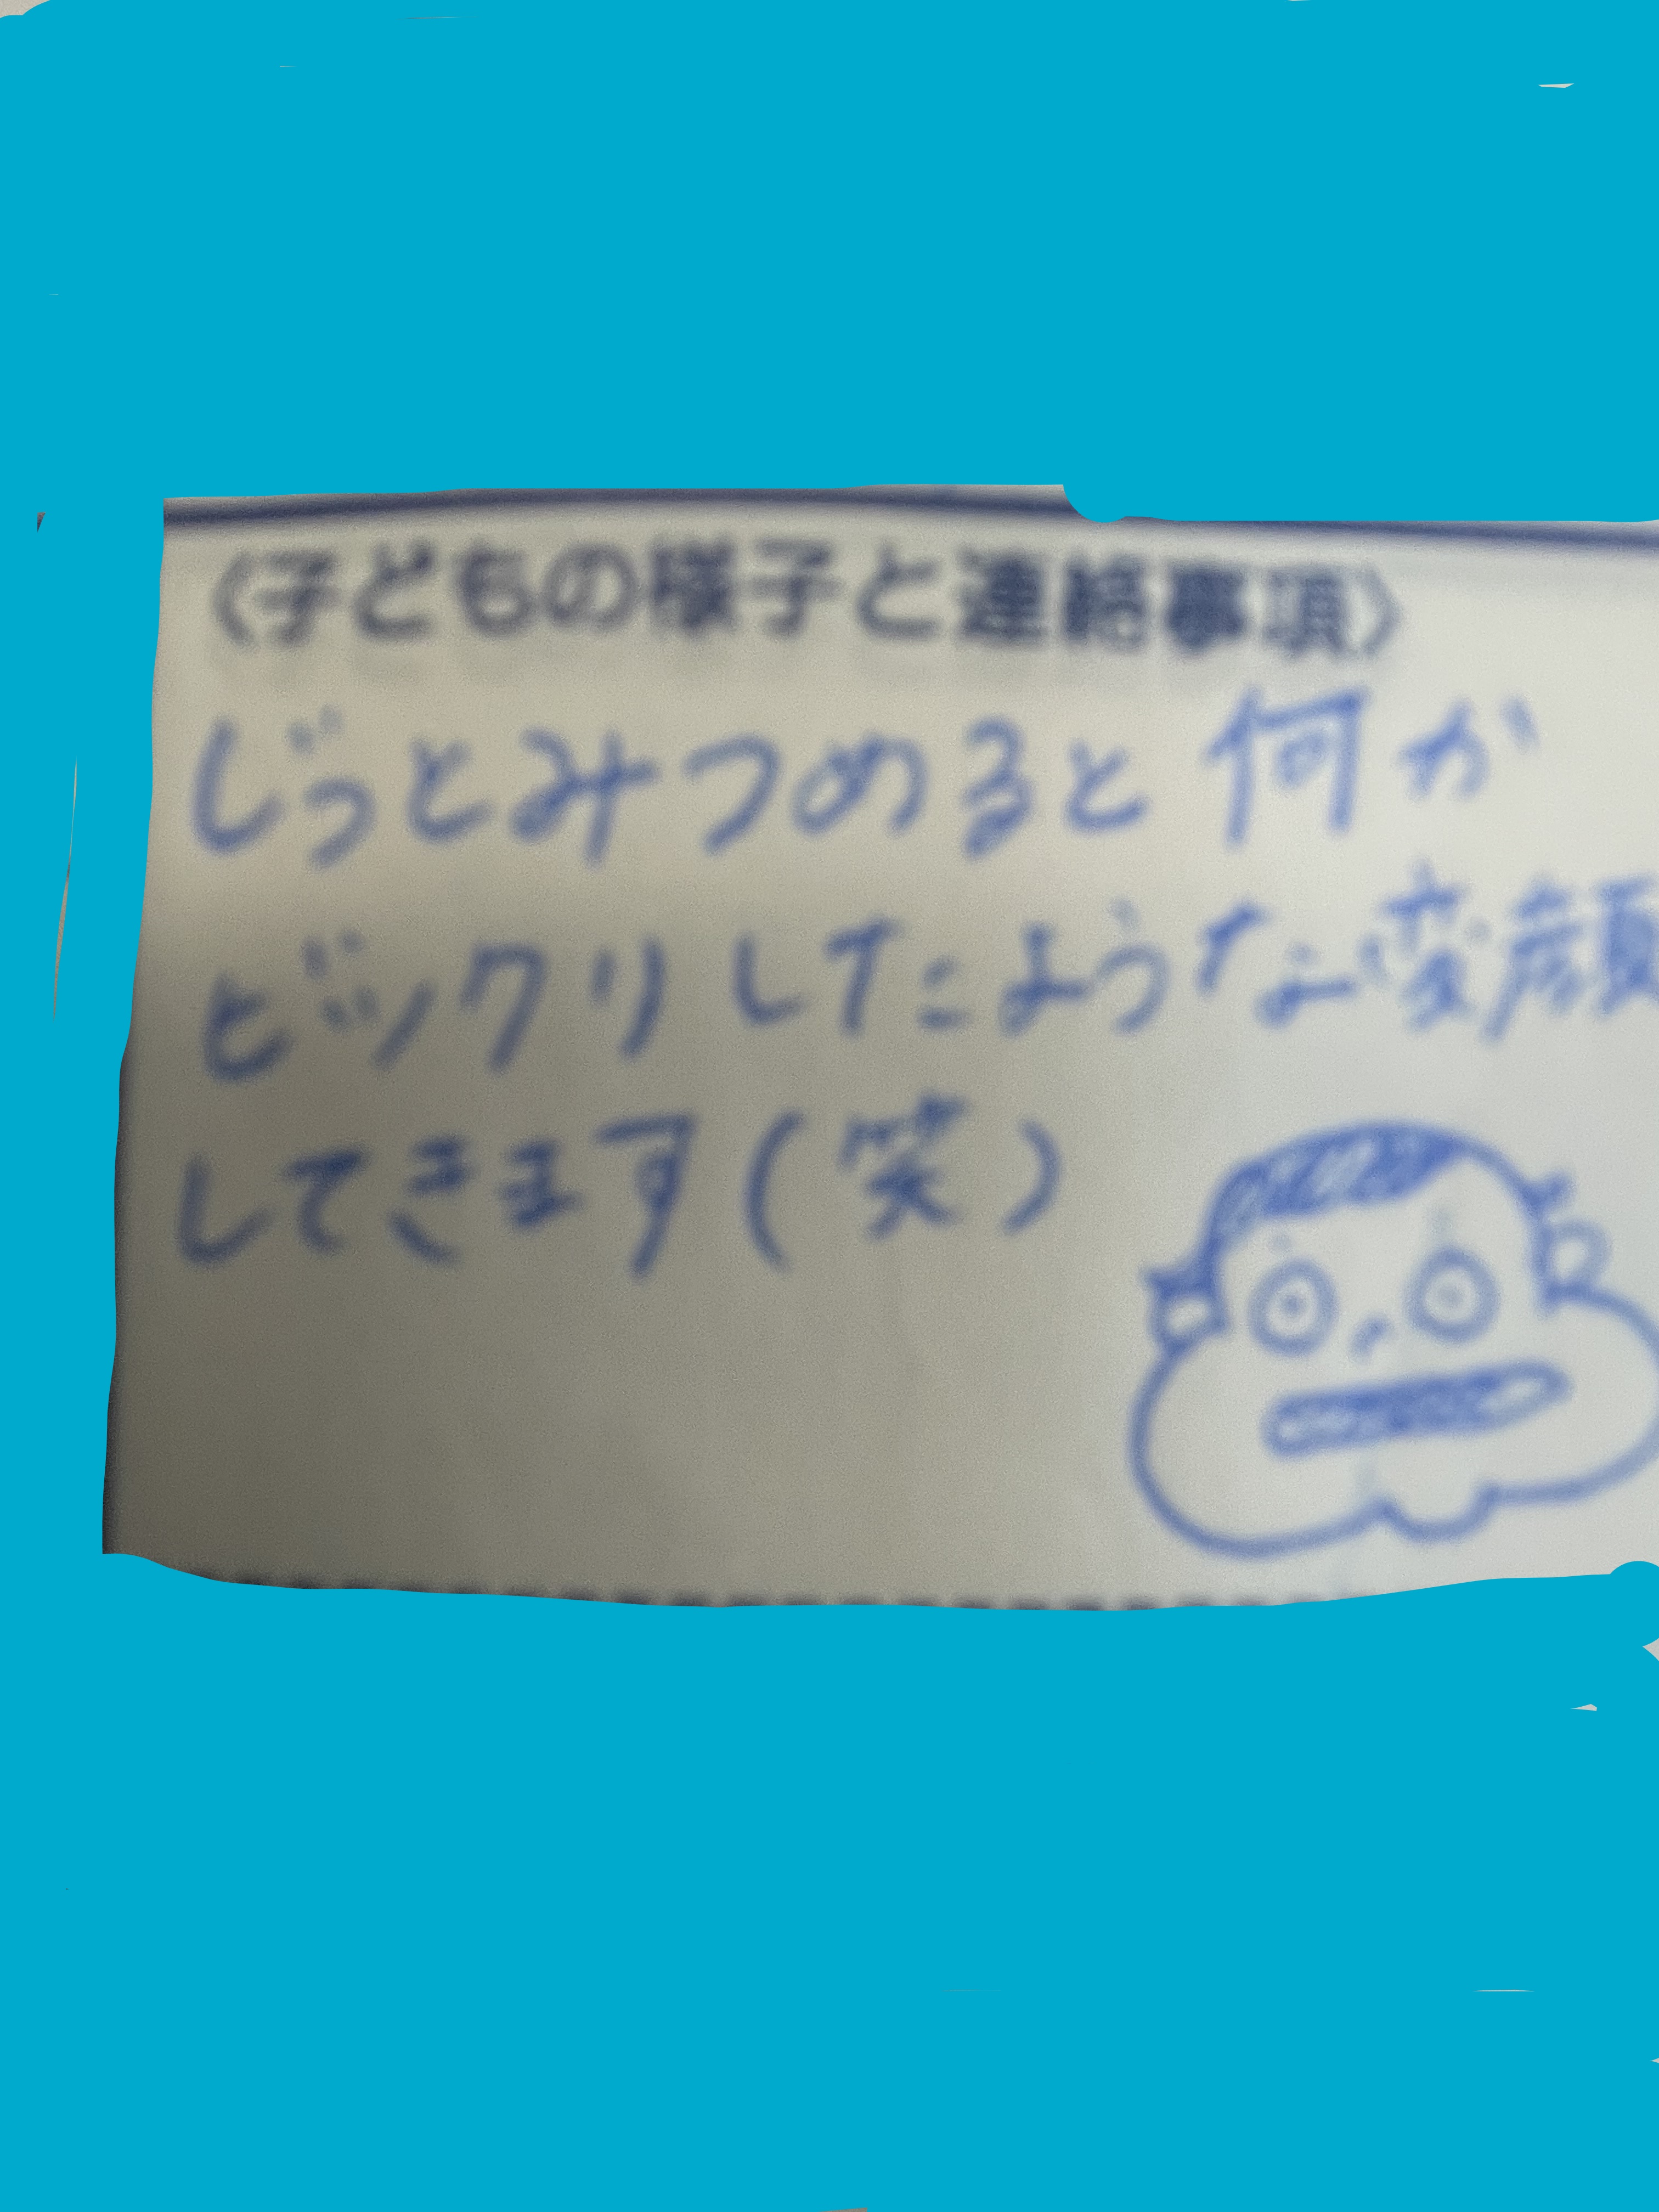 〈子どもの様子と連絡事項〉
じっとみつめると何か
ビックリしたような変顔
してきます(笑)